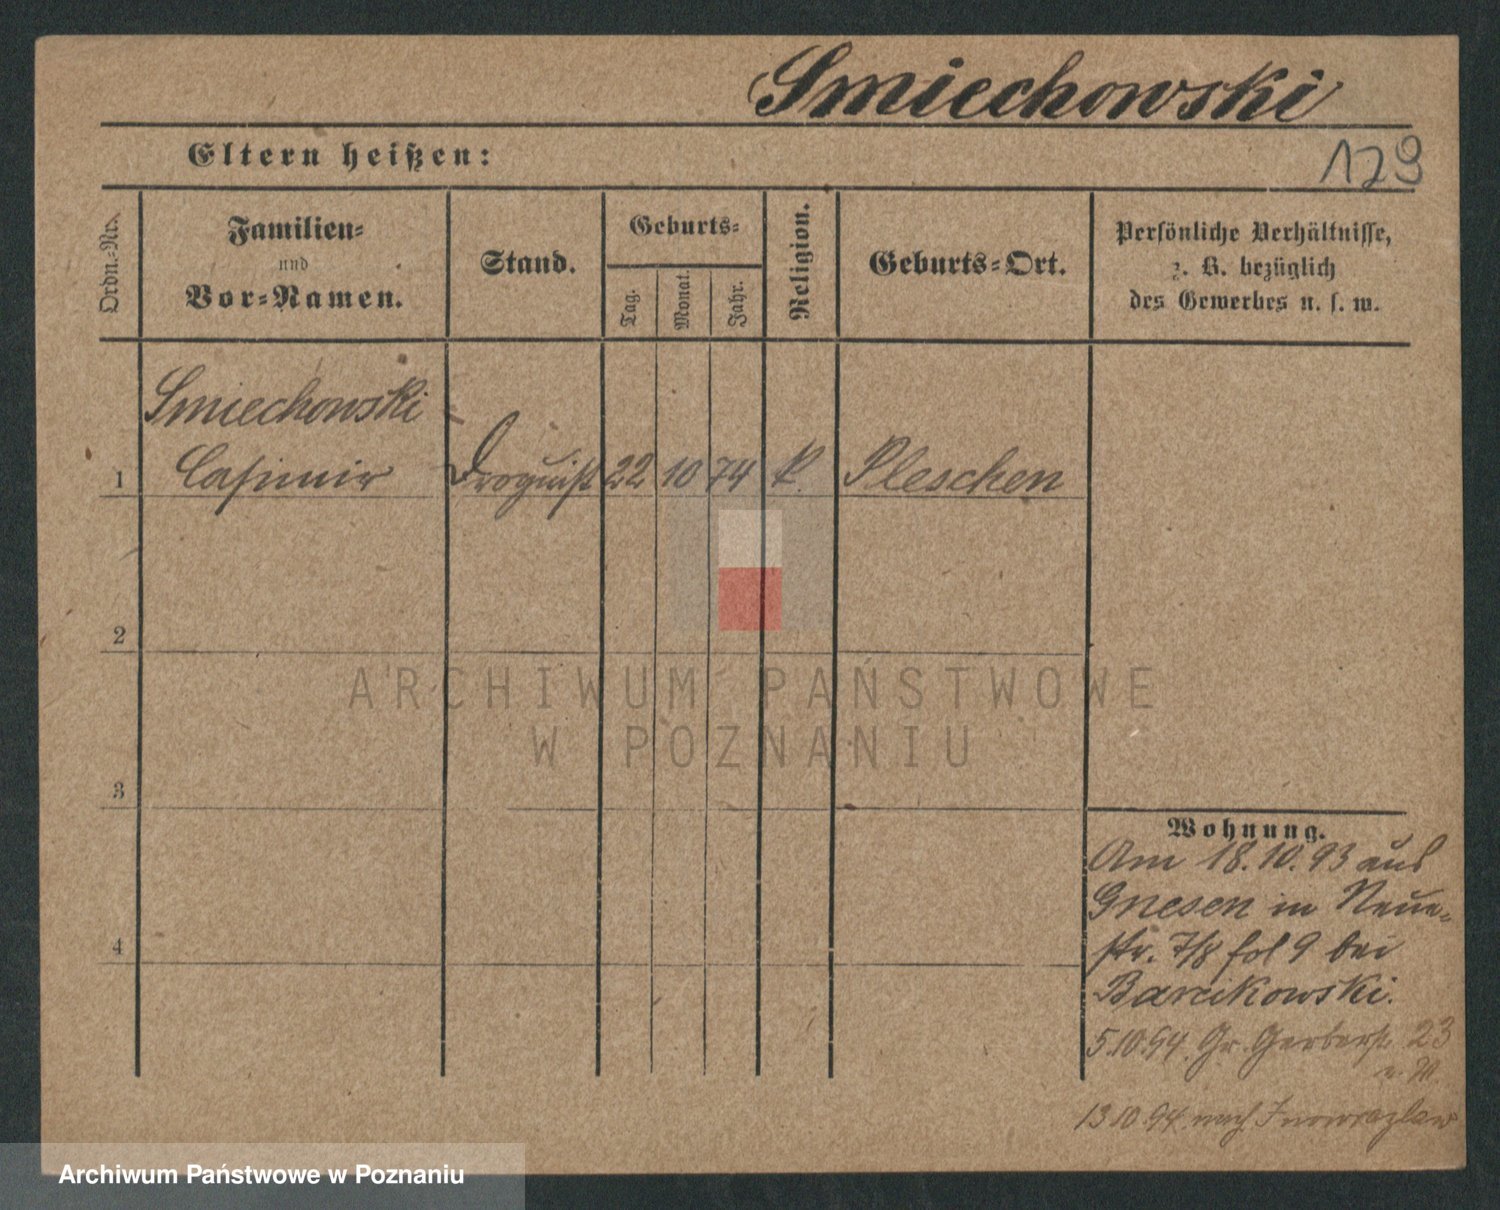 Smiechowski
Eltern heißen:
129
Ordn.-Nr.
Familien-
und
Vor-Namen.
Stand.
Geburts-
Tag.
Monat.
Jahr.
Religion.
Geburts-Ort.
Persönliche Verhältnisse,
z. B. bezüglich
des Gewerbes u. s. w.
Smiechowski
1 Casimir Droguist 22 10 74 k. Pleschen
2
3
4
Wohnung.
Am 18.10.93 aus
Gnesen in Neue-
str. 7/8 fol 9 bei
Barcikowski.
5.10.94. Gr. Gerberstr. 23
13.10.94. nach Inowrazlaw
ARCHIWUM PAŃSTWOWE
W POZNANIU
Archiwum Państwowe w Poznaniu